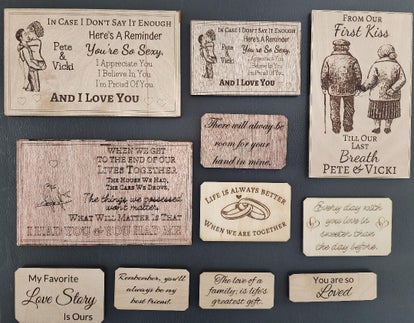 In Case I Don't Say It Enough
Here's A Reminder
Pete
&
Vicki
You're So Sexy,
I Appreciate You
I Believe In You
I'm Proud Of You
And I Love You
In Case I Don't Say It Enough
Here's A Reminder
Pete
&
Vicki
You're So Sexy,
I Appreciate You
I Believe In You
I'm Proud Of You
And I Love You
From Our
First Kiss
Till Our
Last
Breath
Pete & Vicki
There will always be
room for your
hand in mine.
When We Get
To The End Of Our
Lives Together
The House We Had,
The Cars We Drove,
The things we possessed
won't matter.
What Will Matter Is That
I Had You & You Had Me
Life is always better
when we are together
Every day with
you love is
sweeter than
the day before.
My Favorite
Love Story
Is Ours
Remember, you'll
always be my
best friend.
The love of a
family is life's
greatest gift.
You are so
Loved